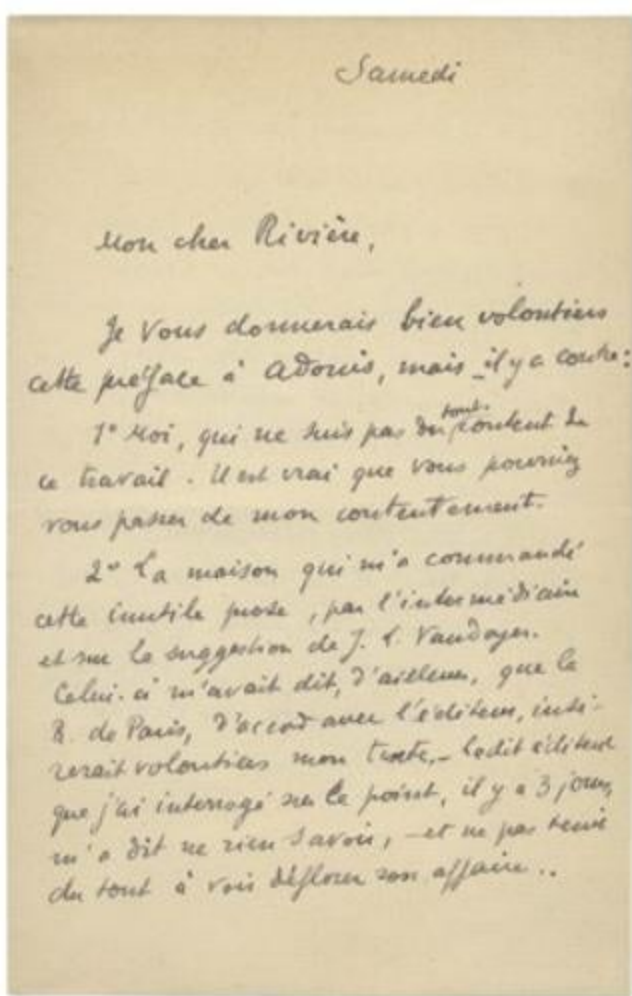 Samedi
Mon cher Rivière,
Je vous donnerais bien volontiers
cette préface à Adonis, mais _ il y a contre :
1° Moi, qui ne suis pas du tout content de
ce travail. Il est vrai que vous pourriez
vous passer de mon contentement.
2° La maison qui m'a commandé
cette inutile prose, par l'intermédiaire
et sur la suggestion de J. L. Vaudoyer.
Celui-ci m'avait dit, d'ailleurs, que la
R. de Paris, d'accord avec l'éditeur, insé-
rerait volontiers mon texte, - ledit éditeur
que j'ai interrogé sur ce point, il y a 3 jours,
m'a dit ne rien savoir, - et ne pas tenir
du tout à voir déflorer son affaire..